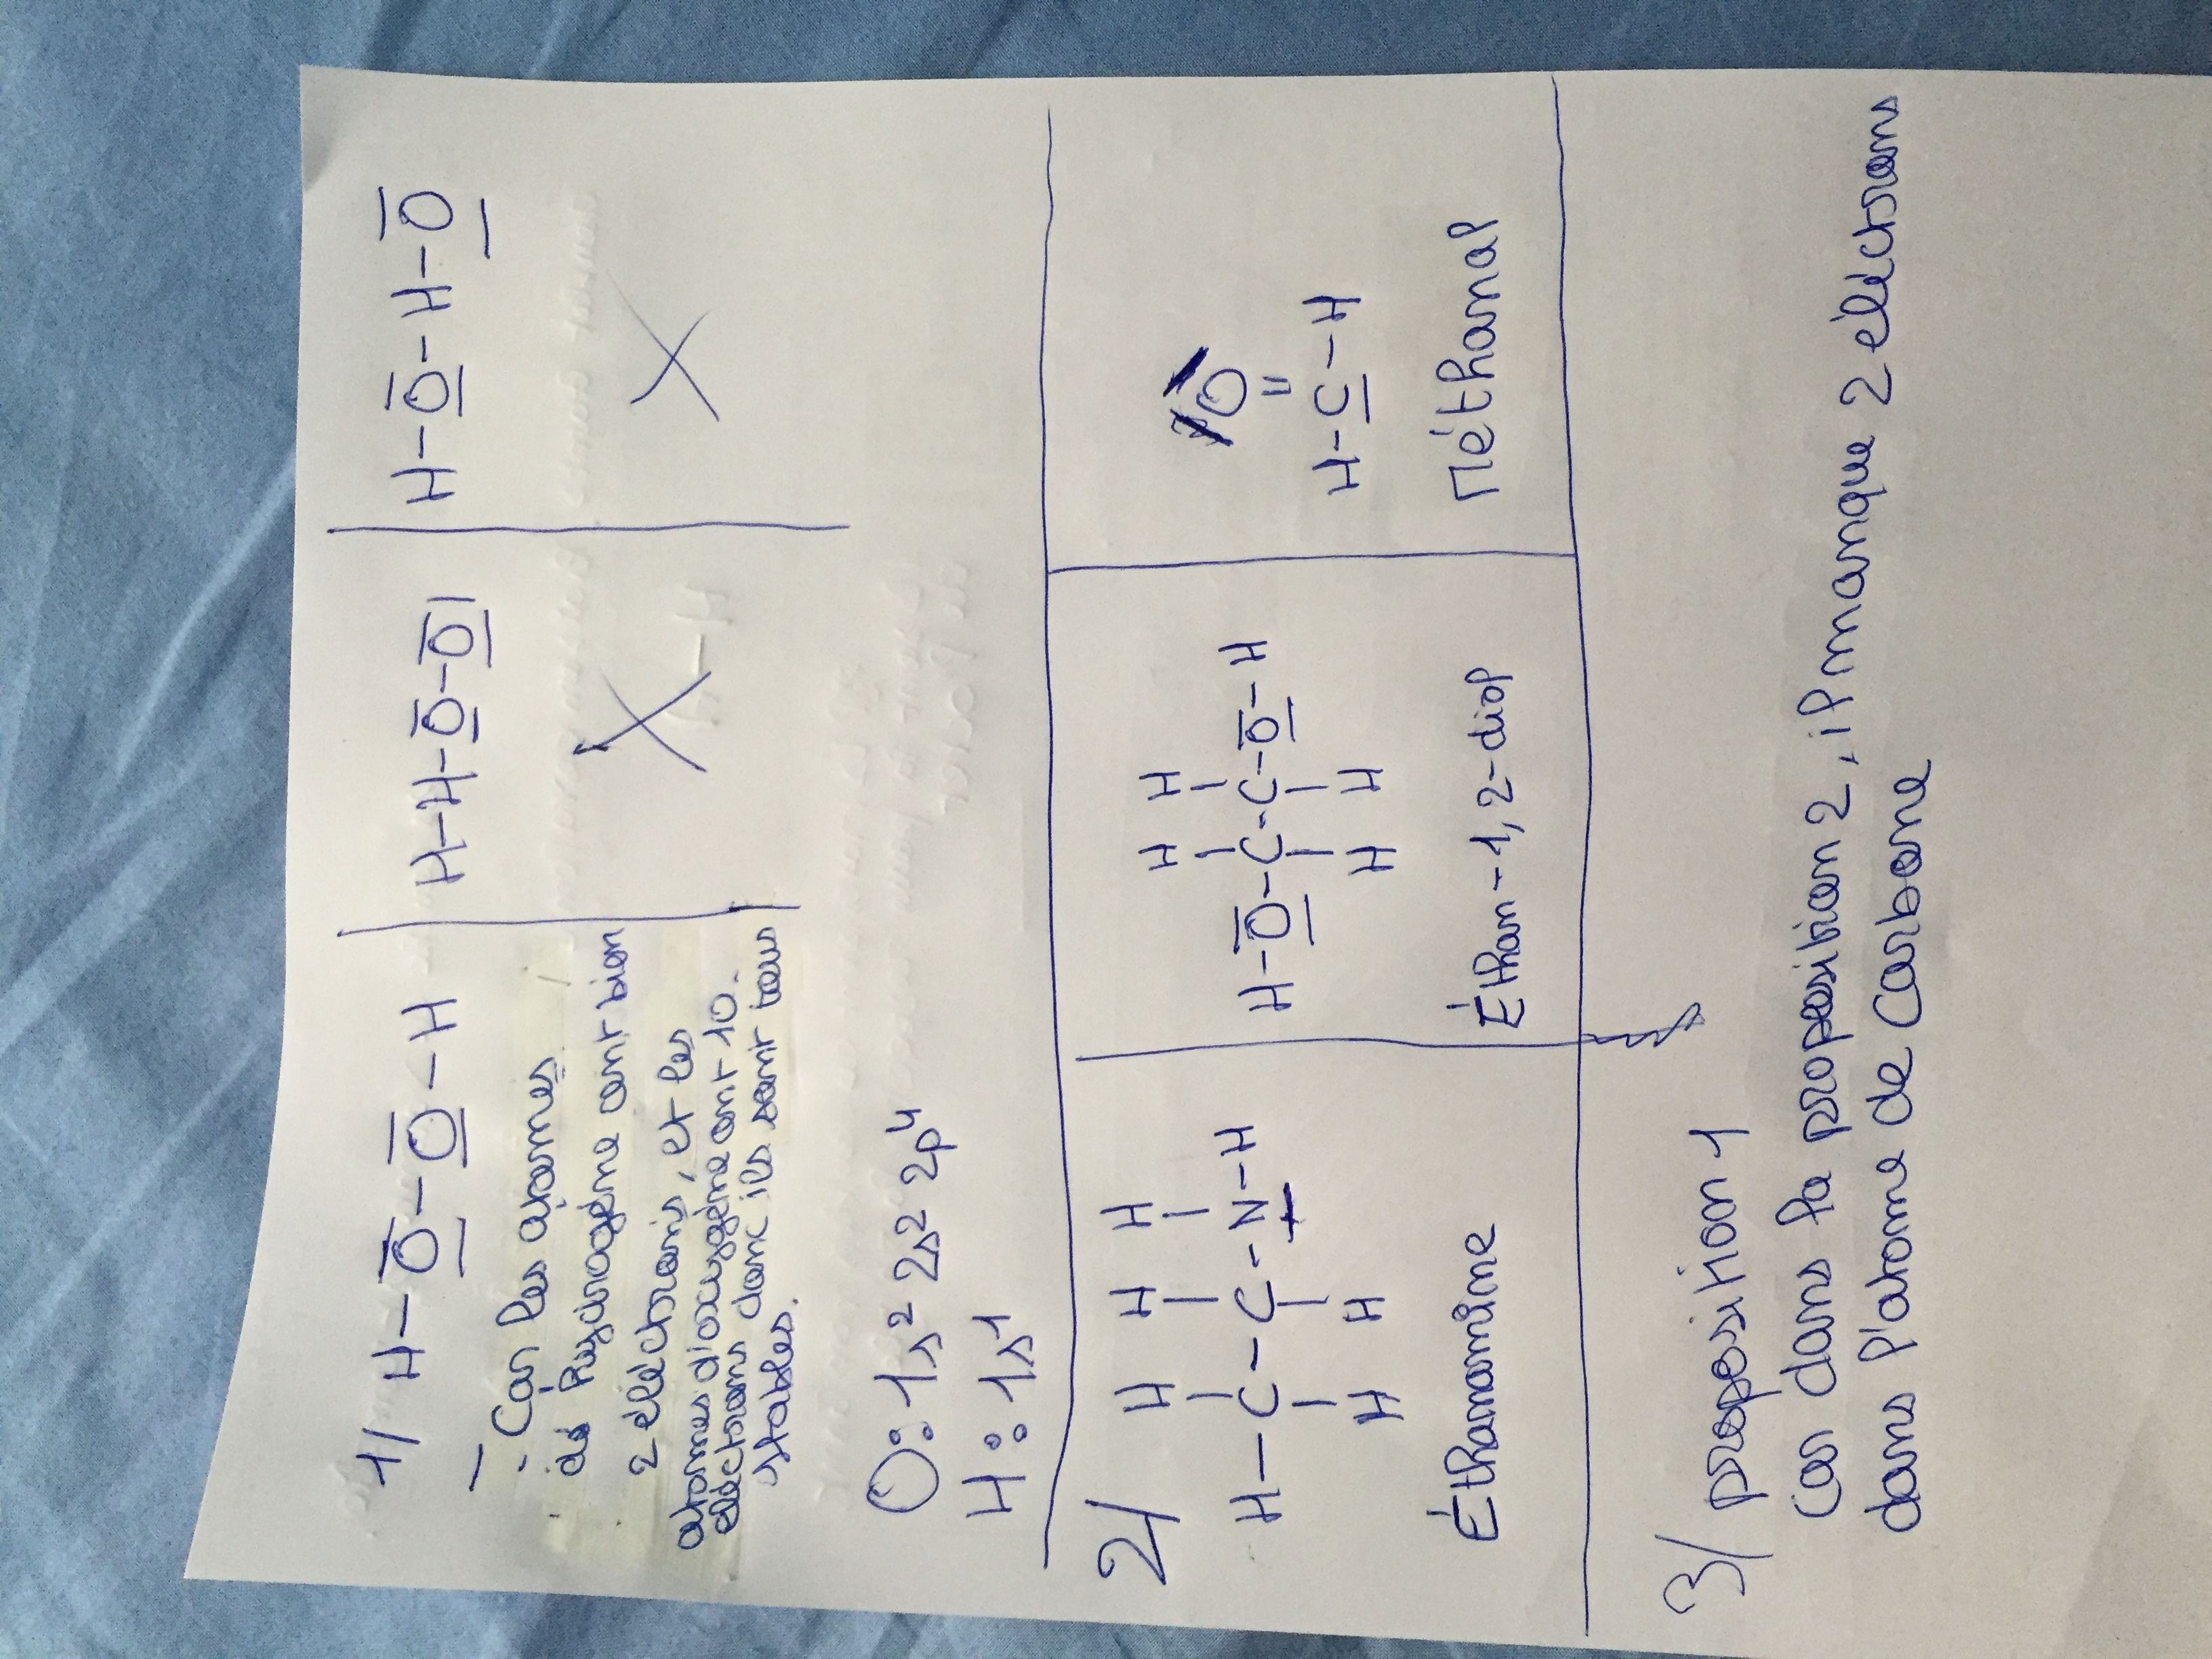 1/ H-O-O-H
H-H-O-O|
H-O-H-O
- Car les atomes
de hydrogène ont bien
2 éléctrons, et les
atomes d'oxygène ont 10
éléctrons donc ils sont tous
stables.
O: 1s² 2s² 2p⁴
H: 1s¹
2/
H H H
H-C-C-N-H
H H
Éthanamine
H H
H-O-C-C-O-H
H H
Éthan-1,2-diol
O
H-C-H
Méthanal
3/ proposition 1
car dans la proposition 2, il manque 2 éléctrons
dans l'atome de carbone